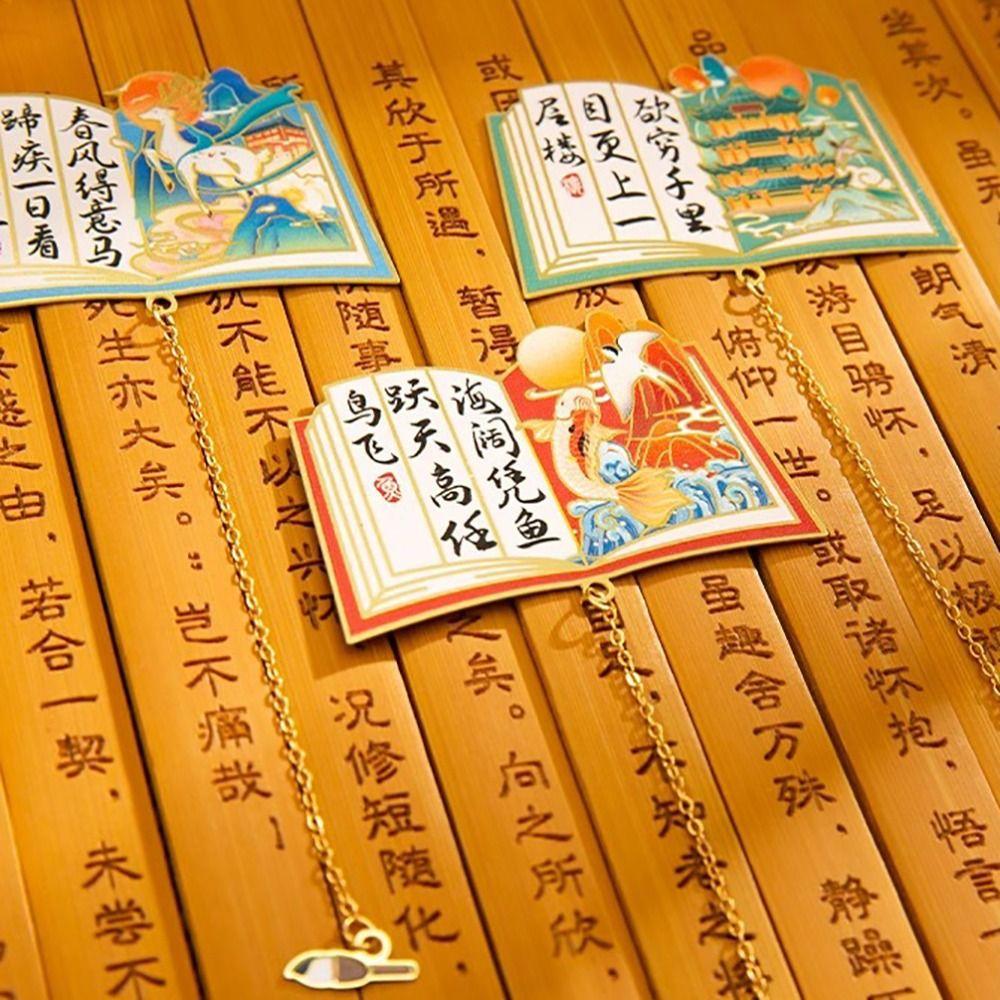 春风得意马
蹄疾一日看
欲穷千里
目更上一
层楼
海阔凭鱼
跃天高任
鸟飞
坐其次。虽无
朗气清
品
游目骋怀，足以极
俯仰一世。或取诸怀抱，悟言一
或因
放
虽趣舍万殊，静躁
其欣于所遇，暂得
不知老之将
所
随事
之矣。向之所欣，
犹不能不以之兴怀
况修短随化
死生亦大矣。”岂不痛哉！
之由，若合一契，未尝不